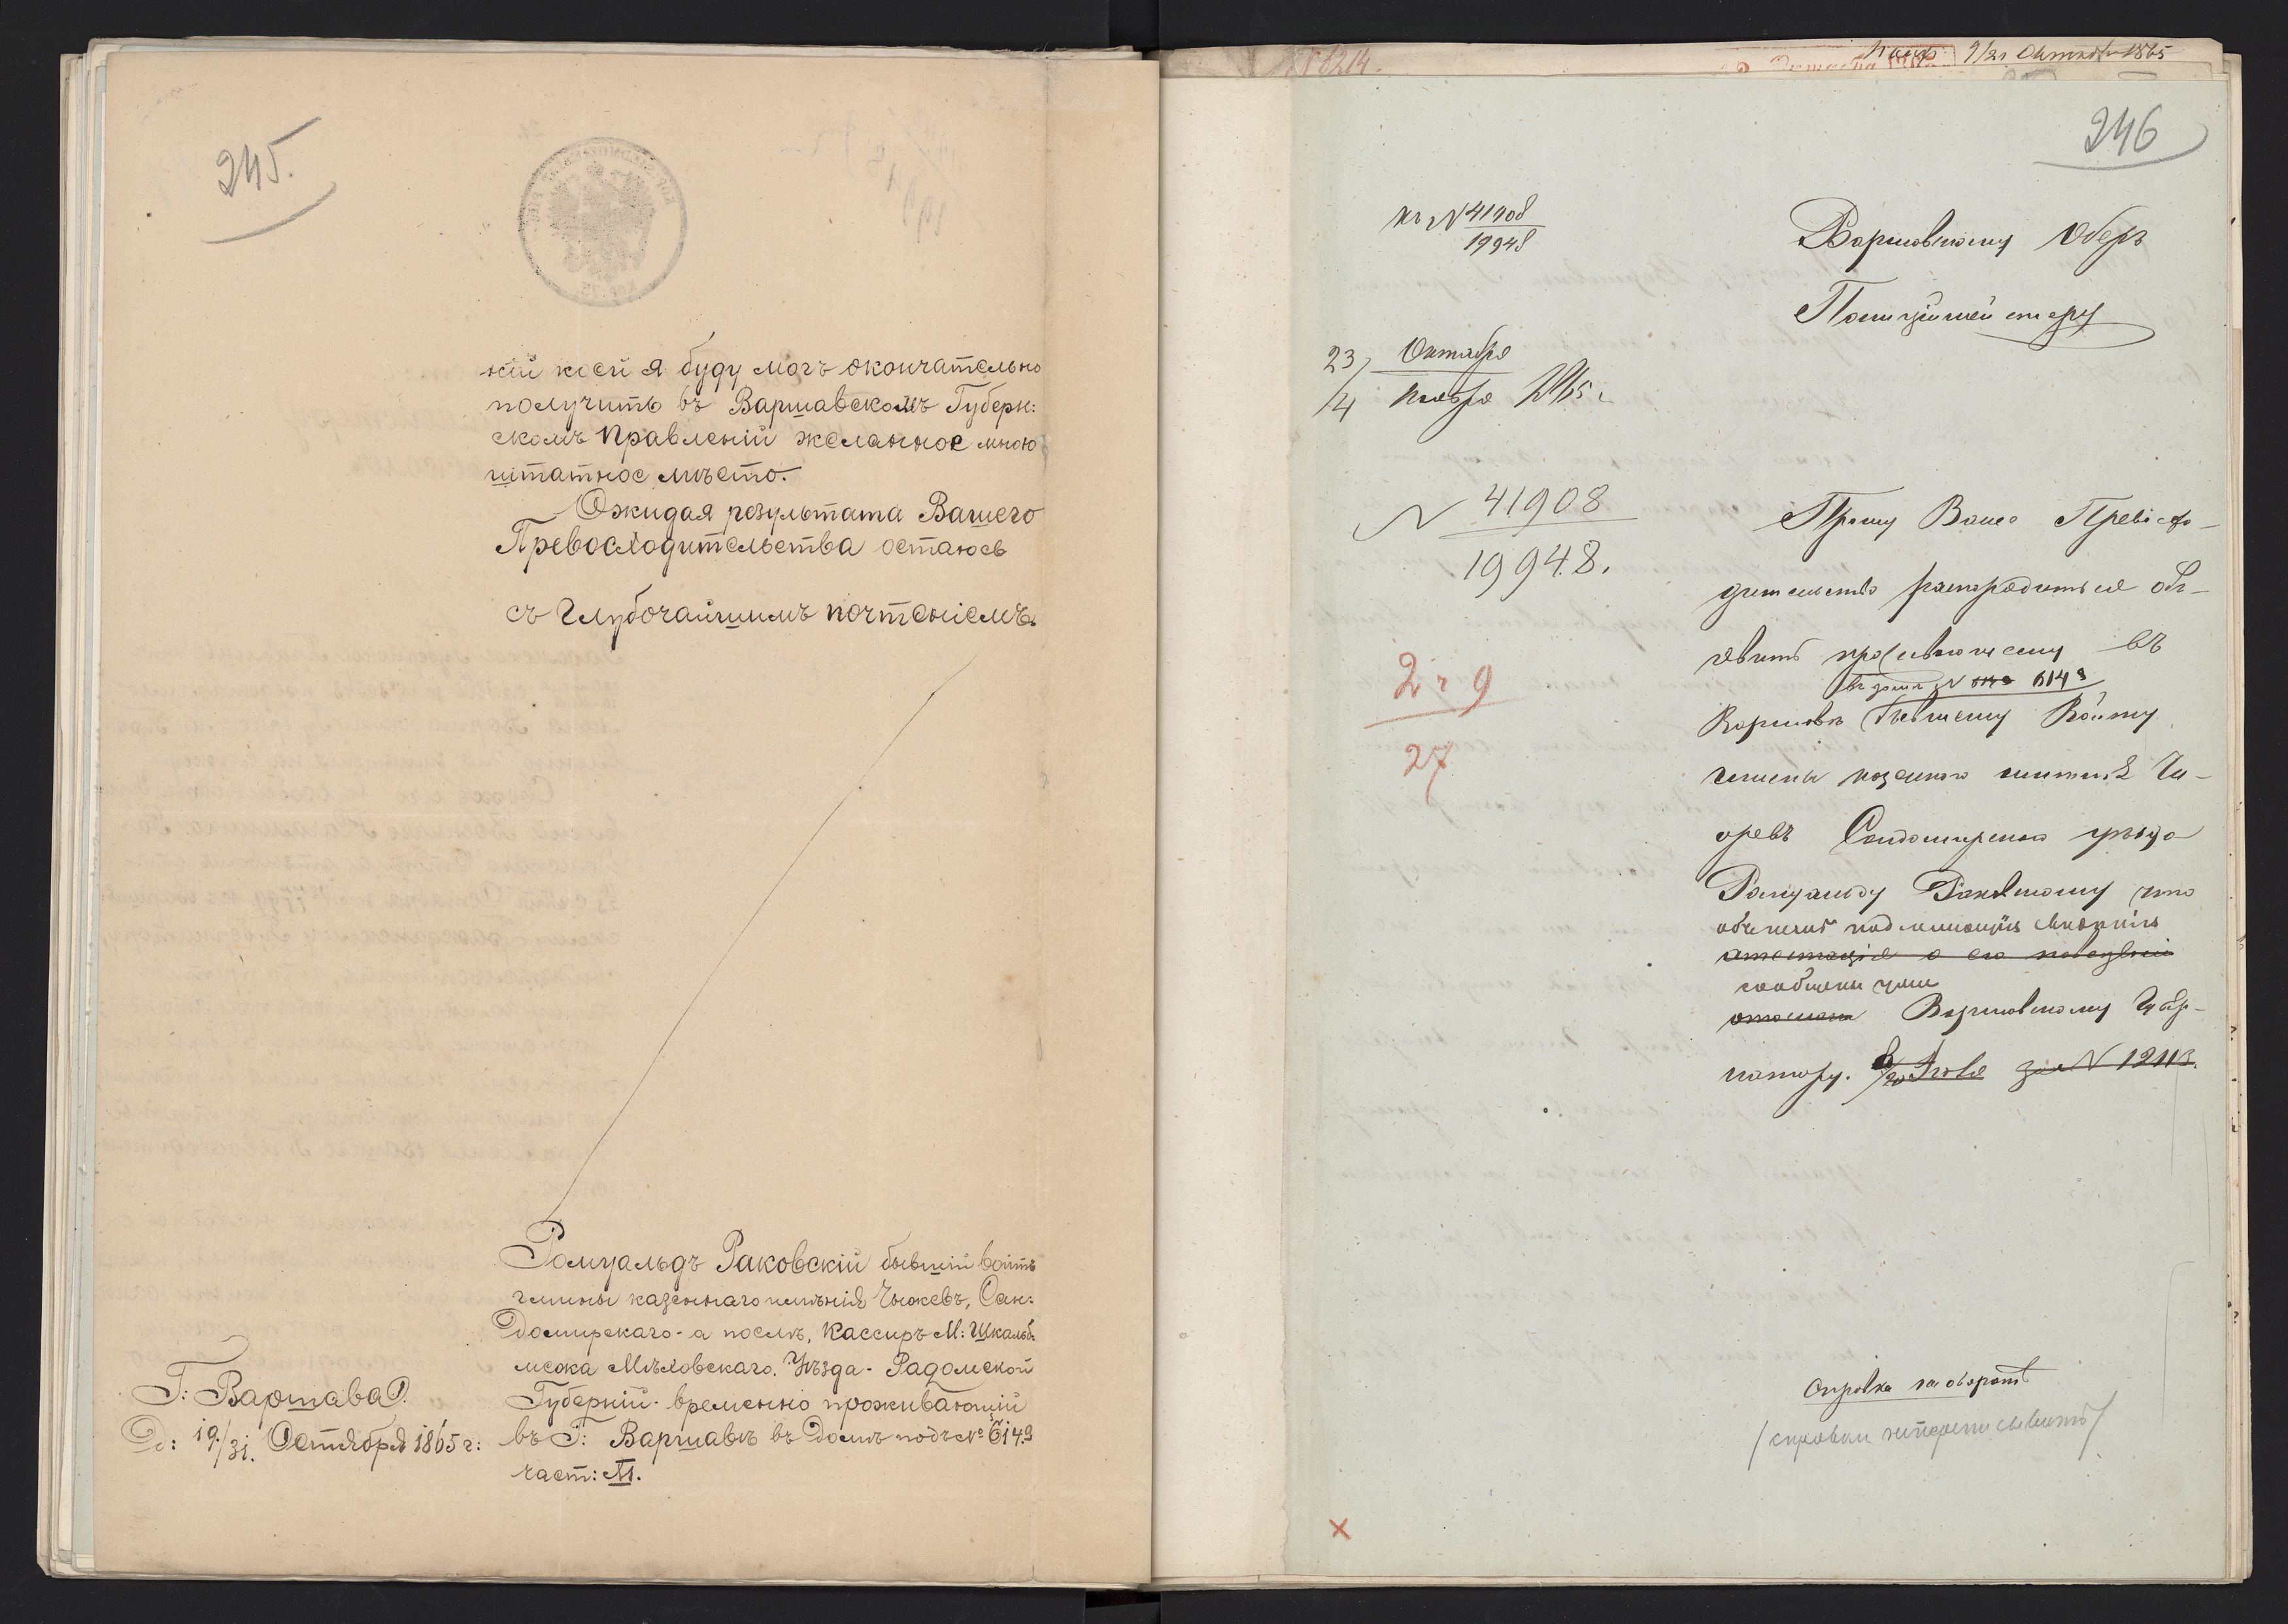 245.
кій коей я буду могъ окончательно
получить въ Варшавскомъ Губерн:
скомъ Правленіи желанное мною
штатное мѣсто.
Ожидая результата Вашего
Превосходительства остаюсь
съ глубочайшимъ почтеніемъ
Ромуальдъ Раковскій бывшій войтъ
гмины казеннаго имѣнія
Сан:
домирскаго - а послѣ, Кассиръ М: Шкальб:
мержа Мѣховскаго. Уѣзда - Радомской
Губерніи - временно проживающій
въ Г: Варшавѣ въ Домѣ подъ № 614
част:
Г: Варшава
Д: 19/31. Октября 1865 г:
9/21 Октября 1865
246
къ N 41908
19948
Варшавскому Оберъ
Полиціймейстеру
23/4 Октября
Ноября 1865 г
N 41908
19948.
2 г 9
27
Прошу Ваше Превосхо-
дительство распорядиться объ-
явить проживающему въ
въ домѣ N 614
Варшавѣ бывшему Войту
гмины казеннаго имѣнія
Сандомирскаго уѣзда
Ромуальду Раковскому что
аттестація о его поведеніи
сообщены уже
отослана Варшавскому Губер-
натору.
Іюля за N 12113.
Справка на оборотѣ